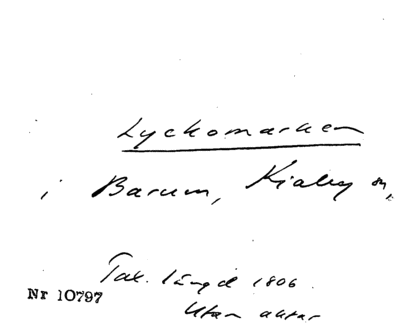 Lyckomarken
i Barum, Kiaby sn,
Tax. längd 1806.
Nr 10797
Utan aktar